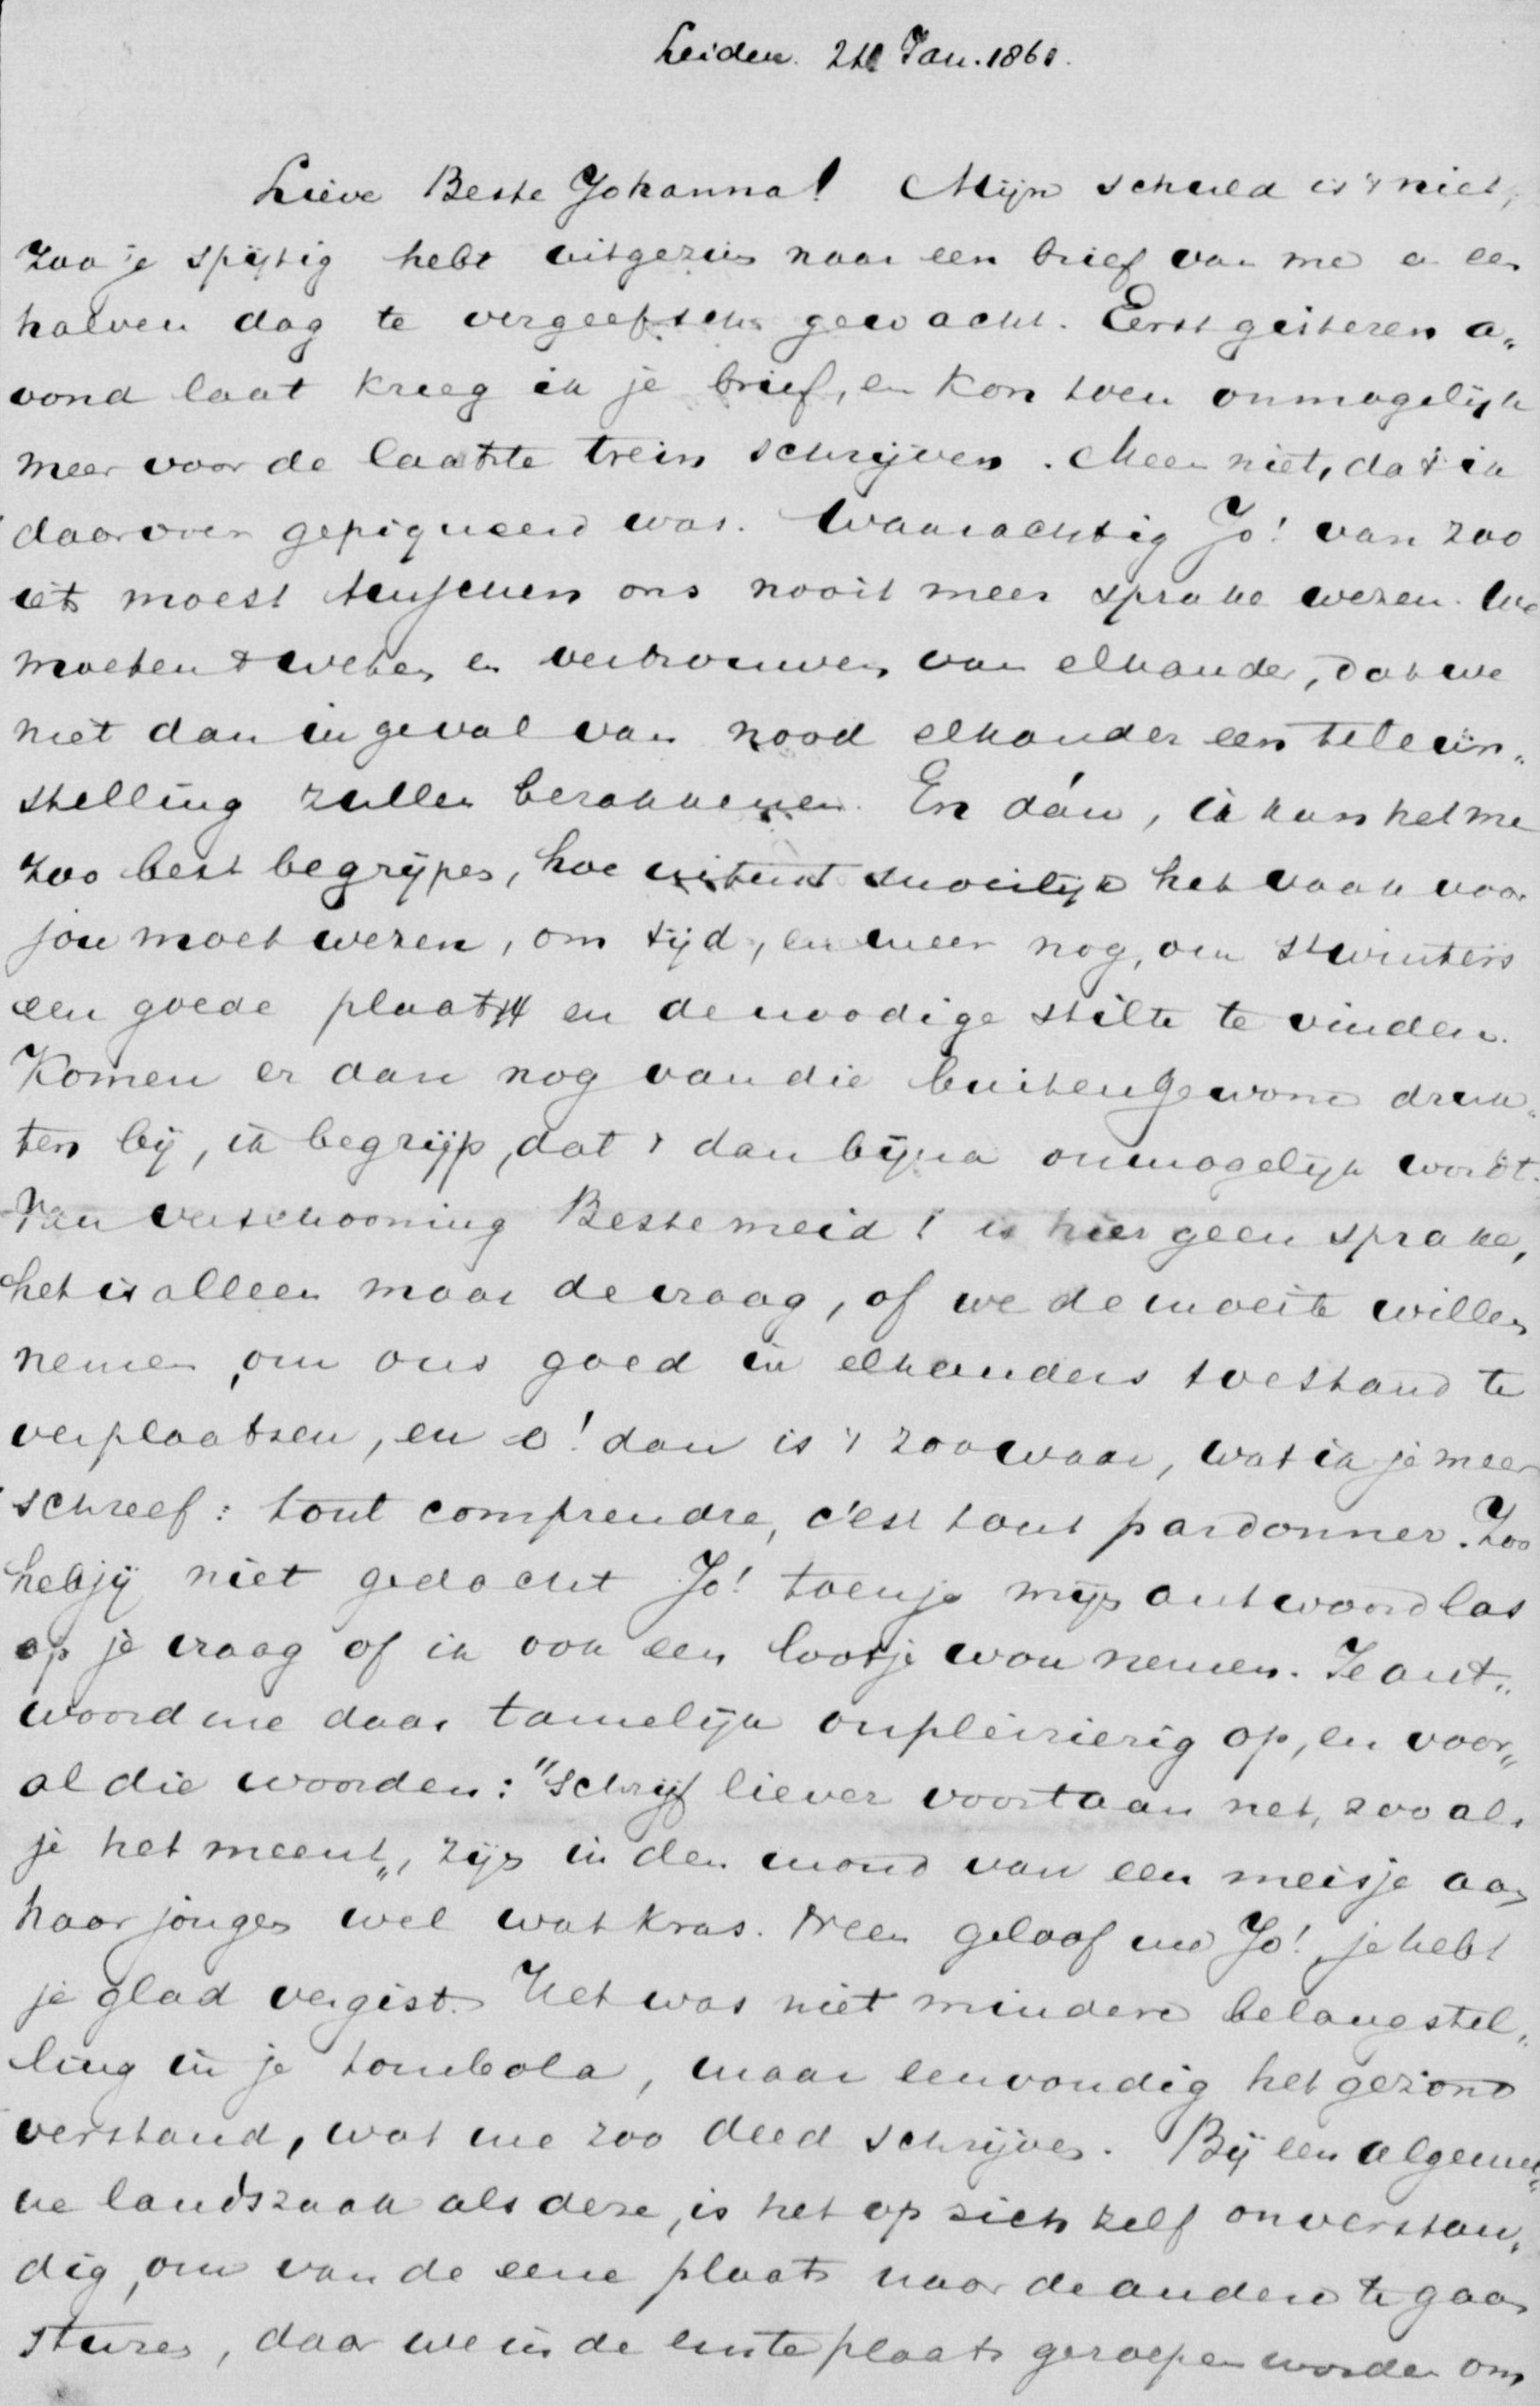 Leiden. 2 Jan. 1861.
Lieve Beste Johanna! Mijn schuld is 't niet,
zoo je spijtig hebt uitgezien naar een brief van me en een
halven dag te vergeefsch gewacht. Eerst gisteren a„
vond laat kreeg ik je brief, en kon toen onmogelijk
meer voor de laatste trein schrijven. Meen niet, dat ik
daarover gepiqueerd was. Waarachtig Jo! van zoo
iets moest tusschen ons nooit meer sprake wezen. We
moeten 't weten en vertrouwen van elkander, dat we
niet dan in geval van nood elkander een teleur„
stelling zullen berokkenen. En dán, ik kan het me
zoo best begrijpen, hoe uiterst moeilijk het vaak voor
jou moet wezen, om tijd, en meer nog, om 's winters
een goede plaats en de noodige stilte te vinden.
Komen er dan nog van die buitengewone druk„
ten bij, ik begrijp, dat 't dan bijna onmogelijk wordt.
Van verschooning Beste meid! is hier geen sprake,
het is alleen maar de vraag, of we de moeite willen
nemen, om ons goed in elkanders toestand te
verplaatsen, en o! dan is 't zoo waar, wat ik je meer
schreef: tout comprendre, c'est tout pardonner. Zoo
heb jij niet gedacht Jo! toen je mijn antwoord las
op je vraag of ik ook een lootje wou nemen. Je ant„
woord me daar tamelijk onpleizierig op, en voor„
al die woorden: "schrijf liever voortaan net, zooals
je het meent„, zijn in den mond van een meisje aan
haar jongen wel wat kras. Neen geloof me Jo! je hebt
je glad vergist. Het was niet mindere belangstel„
ling in je tombola, maar eenvoudig het gezond
verstand, wat me zoo deed schrijven. Bij een algemee„
ne landszaak als deze, is het op zich zelf onverstan„
dig, om van de eene plaats naar de andere te gaan
sturen, daar we in de eerste plaats geroepen worden om